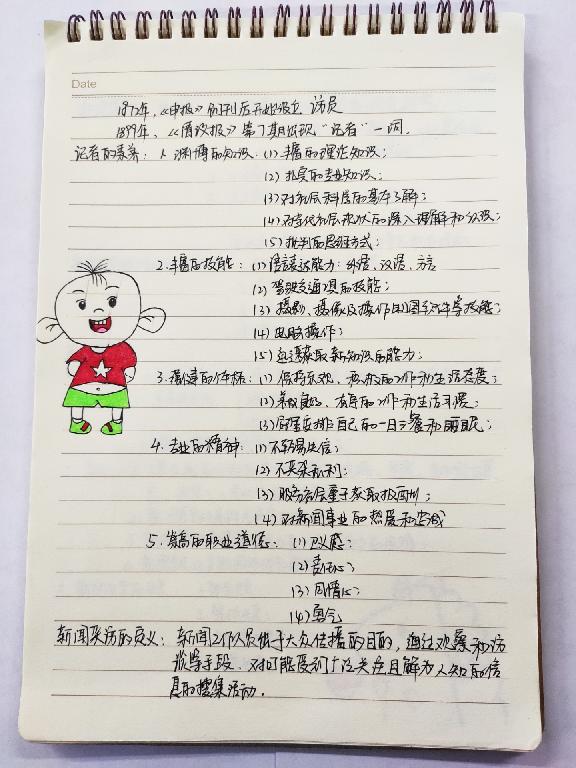 Date
1872年,《申报》创刊后开始设立 访员
1899年,《清议报》第7期出现“记者”一词。
记者的素养: 1. 渊博的知识: (1) 丰富的理论知识;
(2) 扎实的专业知识;
(3) 对初层科层的基本了解;
(4) 对当代和历史状况的深入理解和认识;
(5) 批判的思维方式;
2. 丰富的技能: (1) 语言表达能力: 外语、汉语、方言
(2) 驾驶交通工具的技能;
(3) 摄影、摄像及操作软件等技能;
(4) 电脑操作;
(5) 迅速获取新知识的能力;
3. 强健的体格: (1) 保持乐观、积极的工作和生活态度;
(2) 养成良好、有序的工作和生活习惯;
(3) 合理安排自己的一日三餐和睡眠;
4. 专业的精神: (1) 不轻易失信;
(2) 不夹杂私利;
(3) 服务老层重于获取报酬;
(4) 对新闻事业的热爱和忠诚
5. 崇高的职业道德: (1) 正义感;
(2) 责任心;
(3) 同情心;
(4) 勇气
新闻采访的定义: 新闻工作人员出于大众传播的目的,通过观察和访
谈等手段、对可能受到广泛关注且鲜为人知的信
息的搜集活动.